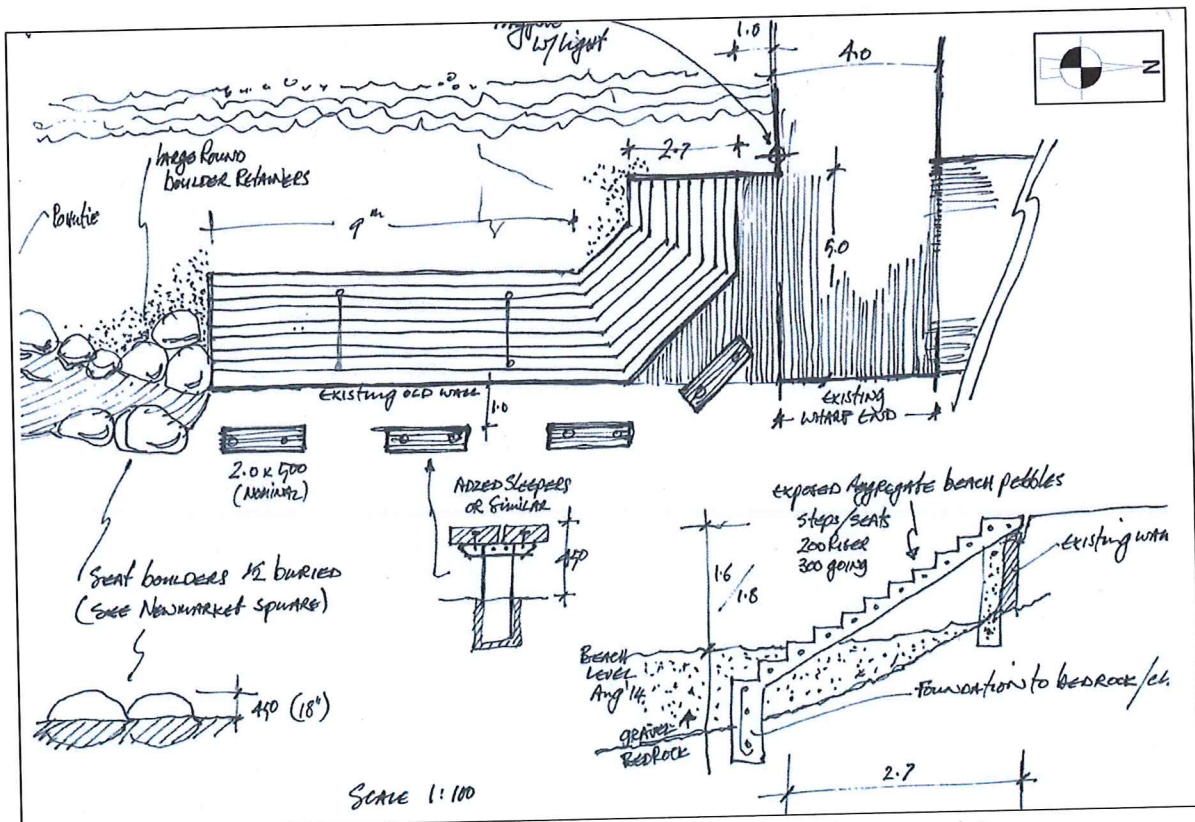 W/Light
1.0
4.0
N
2.7
Large Round
Boulder Retainers
9m
5.0
Existing old wall
1.0
Existing
Wharf End
2.0 x 500
(Nominal)
Adzed Sleepers
or similar
450
Exposed Aggregate beach pebbles
Steps/Seats
200 Riser
300 going
Existing wall
1.6
/1.8
Seat boulders ½ buried
(See Newmarket Square)
Beach
Level
Aug '14
Gravel
Bedrock
Foundation to Bedrock/
450 (18")
2.7
Scale 1:100